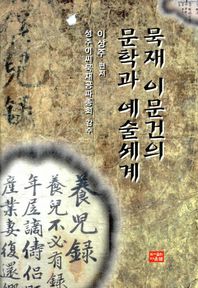 묵재 이문건의
문학과 예술세계
이상주 편저
성주이씨묵재공파종회 감수
兒錄
養兒錄
養兒不必有錄
年居謫儔侶
産業妻復還